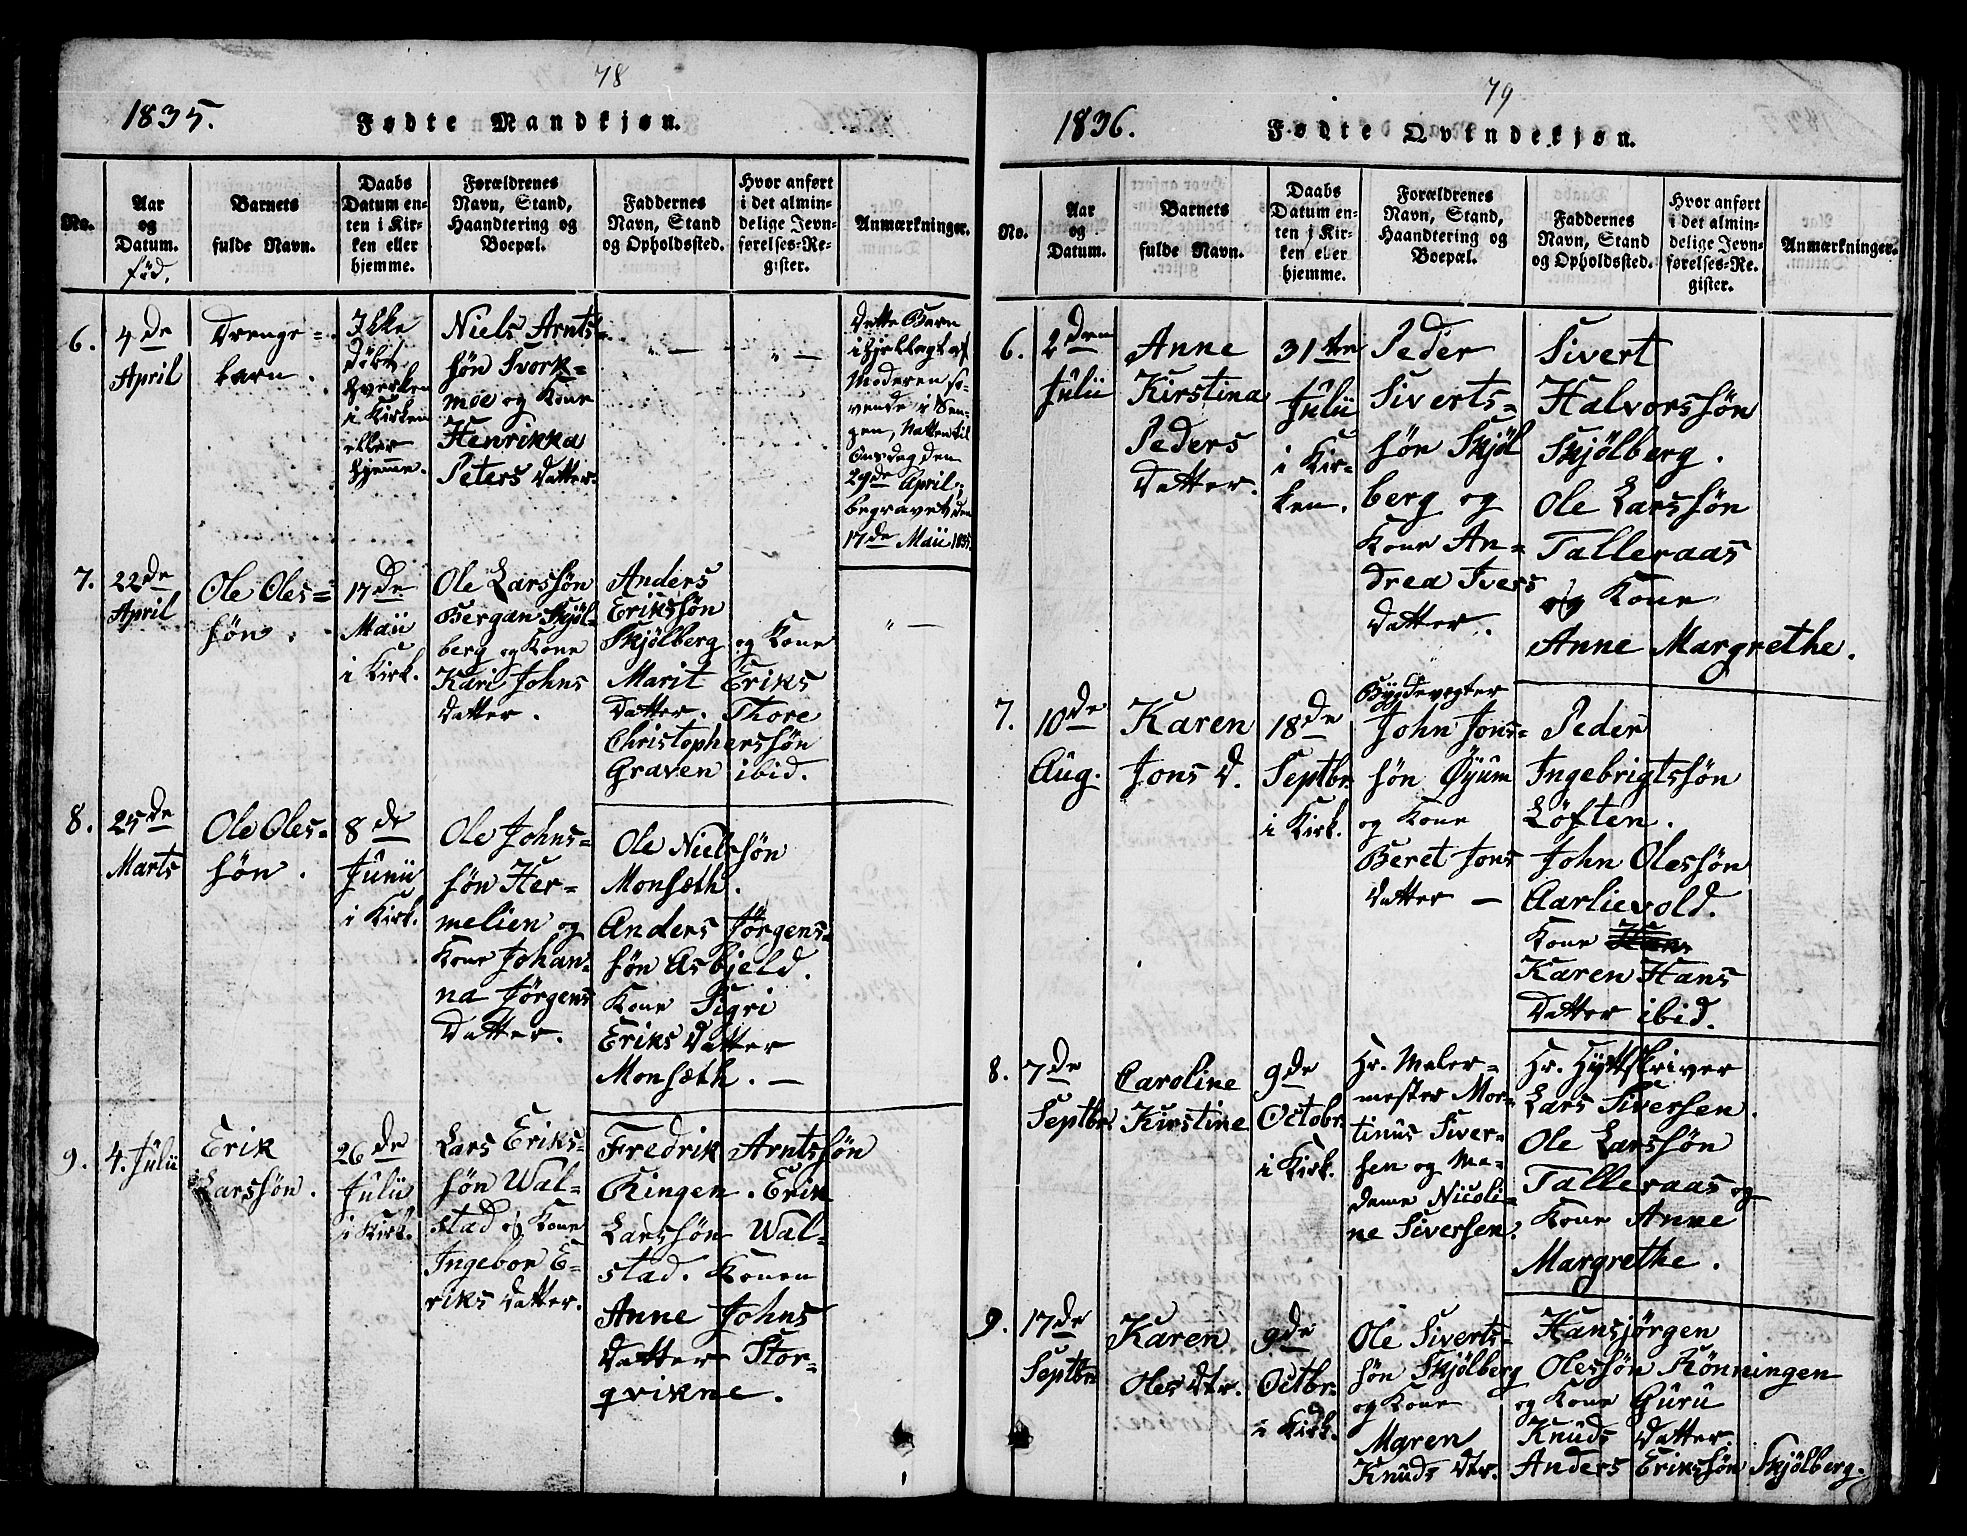 78
1835.
Fødte Mandkjøn.
No.
Aar
og
Datum.
föd.
Barnets
fulde Navn.
Daabs
Datum en-
ten i Kir-
ken eller
hjemme.
Forældrenes
Navn, Stand,
Haandtering og
Boepæl.
Faddernes
Navn, Stand
og Opholdssted.
Hvor anført
i det almin-
delige Jevn-
førelses-Re-
gister.
Anmærkninger.
6.
4de
April
Drenge-
barn.
Ikke
döbt
hverken
i Kirken
eller
hjemme.
Niels Arnts-
søn Svork-
moe og Kone
Henrikka
Peters Datter.
" —
" —
Dette Barn
ihjellagt af
Moderen so-
vende i Sen-
gen, Natten til
Onsdag den
29de April,
begravet den
17de Maii 1835.
7.
22de
April
Ole Oles-
søn.
17de
Maii
i Kirk.
Ole Larssøn
Bergan Skjøl-
berg og Kone
Kari Johns
Datter.
Anders
Erikssøn
Skjølberg og Kone
Marit Eriks
Datter. Thore
Christopherssøn
Graven ibid.
" —
8.
25de
Marts
Ole Oles-
søn.
8de
Junii
i Kirk.
Ole Johns-
søn Her-
melien og
Kone Johan-
na Jørgens
Datter.
Ole Nielssøn
Monsæth.
Anders Jørgens-
søn Asbjeld.
Kone Sigri
Eriks Datter
Monsæth. —
9.
4. Julii
Erik
Larssøn.
26de
Julii
i Kirk.
Lars Eriks-
søn Wal-
stad og Kone
Ingebor E-
riks Datter.
Fredrik Arntssøn
Ringen. Erik
Larssøn Wal-
stad. Konen
Anne Johns
Datter Stor-
qvikne.
79
1836.
Fødte Qvindekjøn.
No.
Aar
og
Datum.
Barnets
fulde Navn.
Daabs
Datum en-
ten i Kir-
ken eller
hjemme.
Forældrenes
Navn, Stand,
Haandtering og
Boepæl.
Faddernes
Navn, Stand
og Opholdssted.
Hvor anført
i det almin-
delige Jevn-
førelses-Re-
gister.
Anmærkninger.
6.
2den
Julii
Anne
Kirstina
Peders
Datter.
31te
Julii
i Kir-
ken.
Peder
Siverts-
søn Skjøl
berg og
Kone An-
drea Ivers
Datter.
Sivert
Halvorssøn
Skjølberg.
Ole Larssøn
Talleraas
og Kone
Anne Margrethe.
7.
10de
Aug.
Karen
Jons D.
18de
Septbr.
i Kirk.
Bygdevegter
John Jons-
søn Øyum
og Kone
Beret Jons
Datter —
Peder
Ingebrigtsøn
Løften.
John Olessøn
Aarlievold.
Kone
Karen Hans
Datter ibid.
8.
7de
Septbr.
Caroline
Kirstine
9de
Octobr.
i Kirk.
Hr. Maler-
mester Mor-
tinus Siver-
sen og Ma-
dame Nicoli-
ne Siversen.
Hr. Hyttskriver
Lars Siversen.
Ole Larssøn
Talleraas og
Kone Anne
Margrethe.
9.
17de
Septbr.
Karen
Oles Dtr.
9de
Octbr.
i Kirk.
Ole Siverts-
søn Skjølberg
og Kone
Maren
Knuds Dtr.
Hansjørgen
Olessøn Rönningen
og Kone Guru
Knuds Datter
Anders Erikssøn Skjølberg.